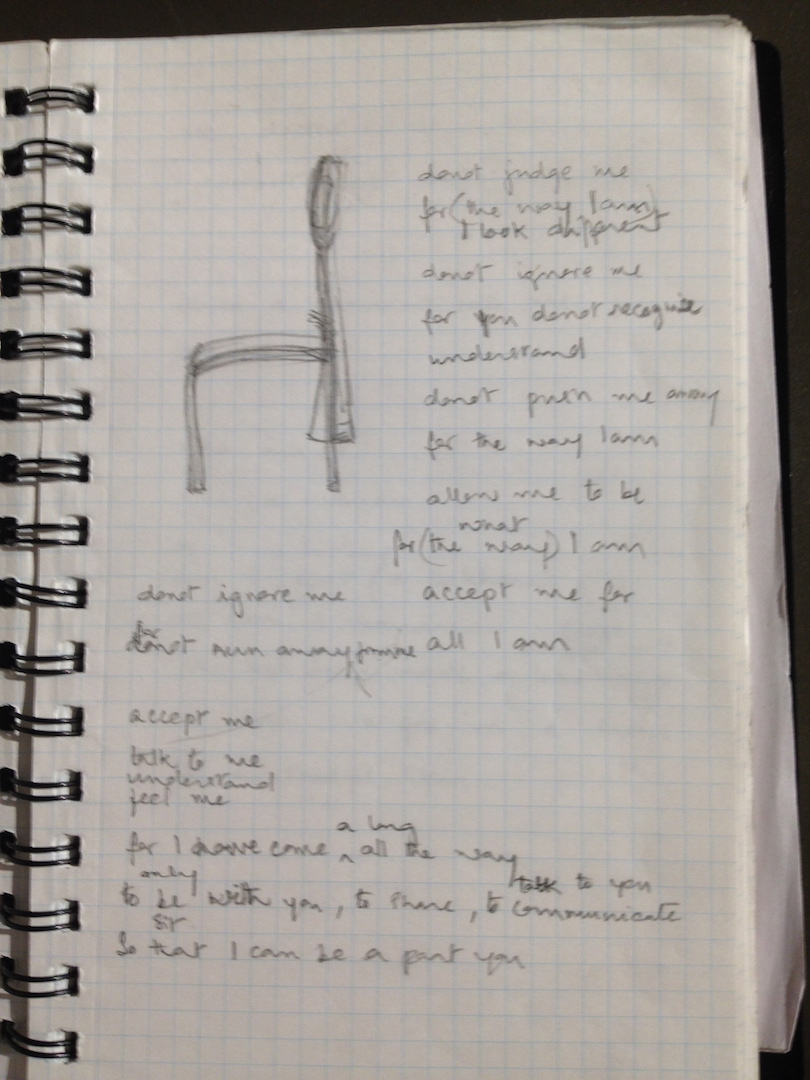 donot judge me
for (the way I am)
I look different
donot ignore me
for you donot recognise
understand
donot push me away
for the way I am
allow me to be
what
for (the way) I am
accept me for
all I am
donot ignore me
for
donot run away from me
accept me
talk to me
understand
feel me
a long
for I have come ^ all the way
only
talk to you
to be with you, to share, to communicate
sit
So that I can be a part you